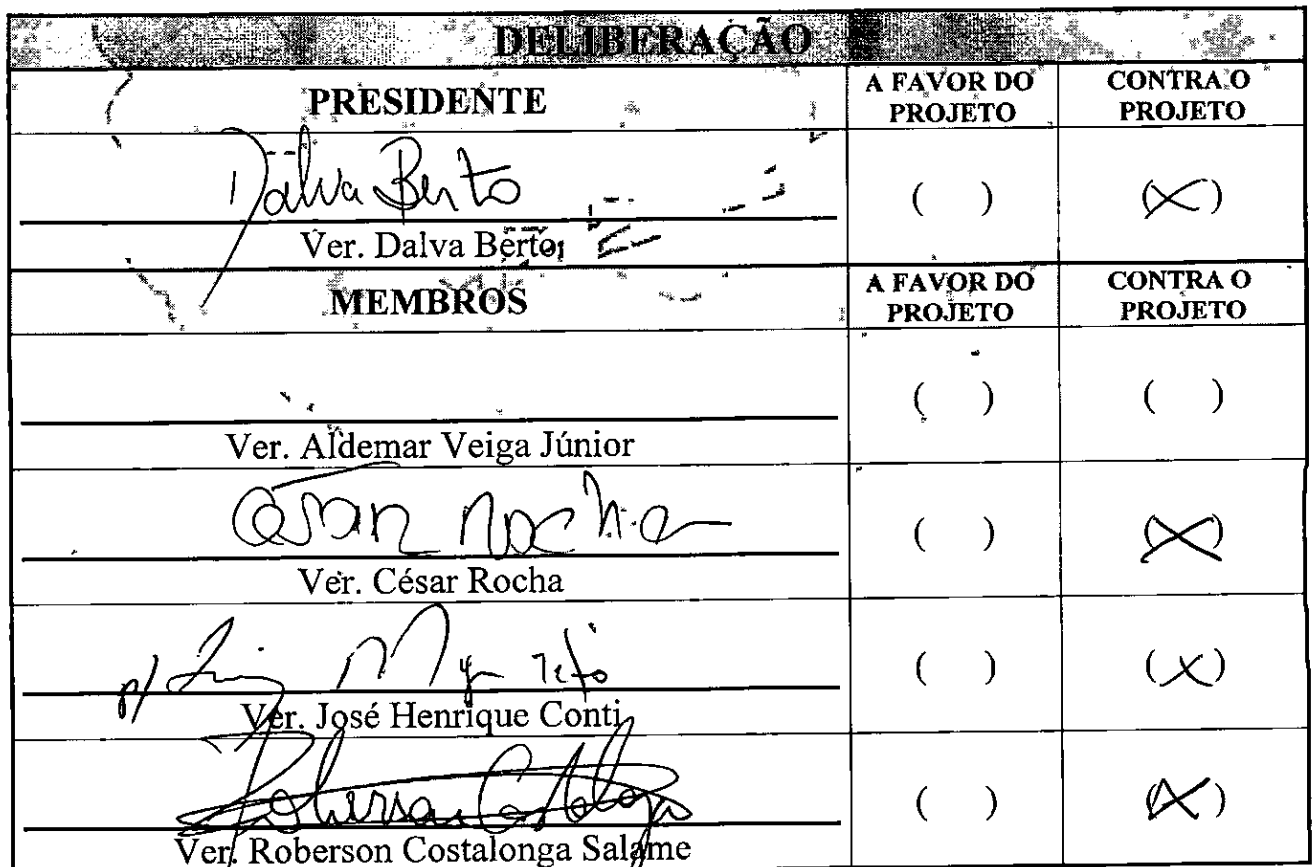 DELIBERAÇÃO
PRESIDENTE
A FAVOR DO
PROJETO
CONTRA O
PROJETO
Dalva Berto
( ) (X)
Ver. Dalva Berto
MEMBROS
A FAVOR DO
PROJETO
CONTRA O
PROJETO
( ) ( )
Ver. Aldemar Veiga Júnior
César Rocha
( ) (X)
Ver. César Rocha
p/
( ) (X)
Ver. José Henrique Conti
Roberson Costalonga
( ) (X)
Ver. Roberson Costalonga Salame